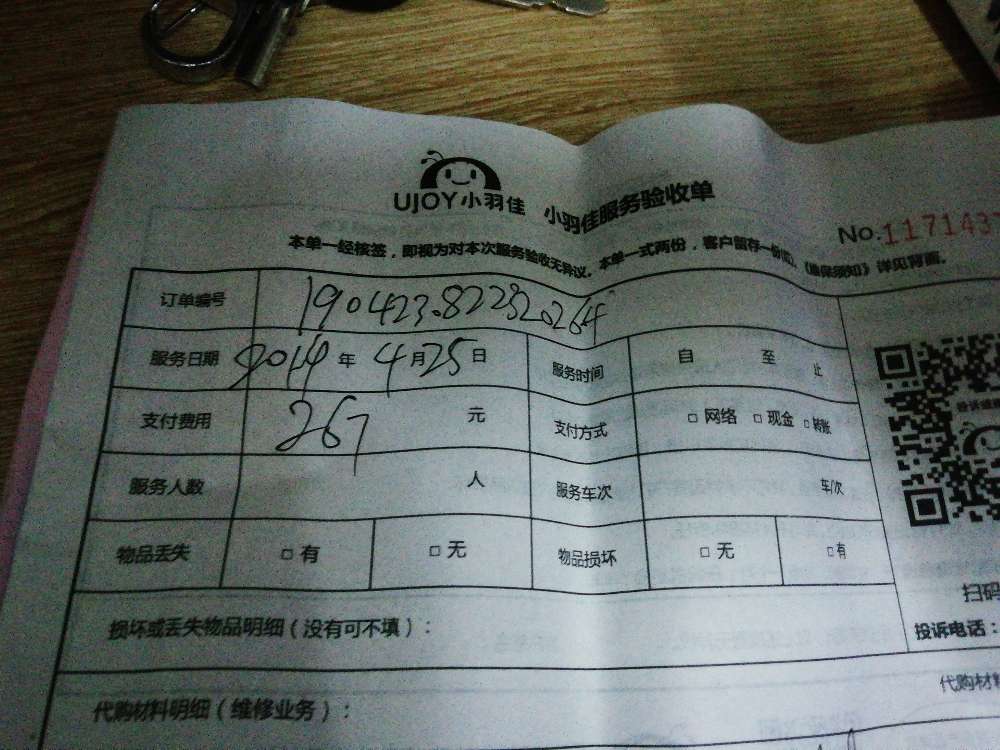 UJOY小羽佳 小羽佳服务验收单
No.117143
本单一经核签，即视为对本次服务验收无异议。本单一式两份，客户留存一份(红)，《验保须知》详见背面。
订单编号 1904230822320264
服务日期 2019年4月25日 服务时间 自 至 止
支付费用 267 元 支付方式 □ 网络 □ 现金 □ 转账
服务人数 人 服务车次 车/次
物品丢失 □ 有 □ 无 物品损坏 □ 无 □ 有
损坏或丢失物品明细（没有可不填）：
扫码
投诉电话：
代购材料明细（维修业务）：
代购材料